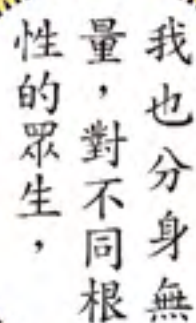 我也分身無
量，對不同根
性的眾生，